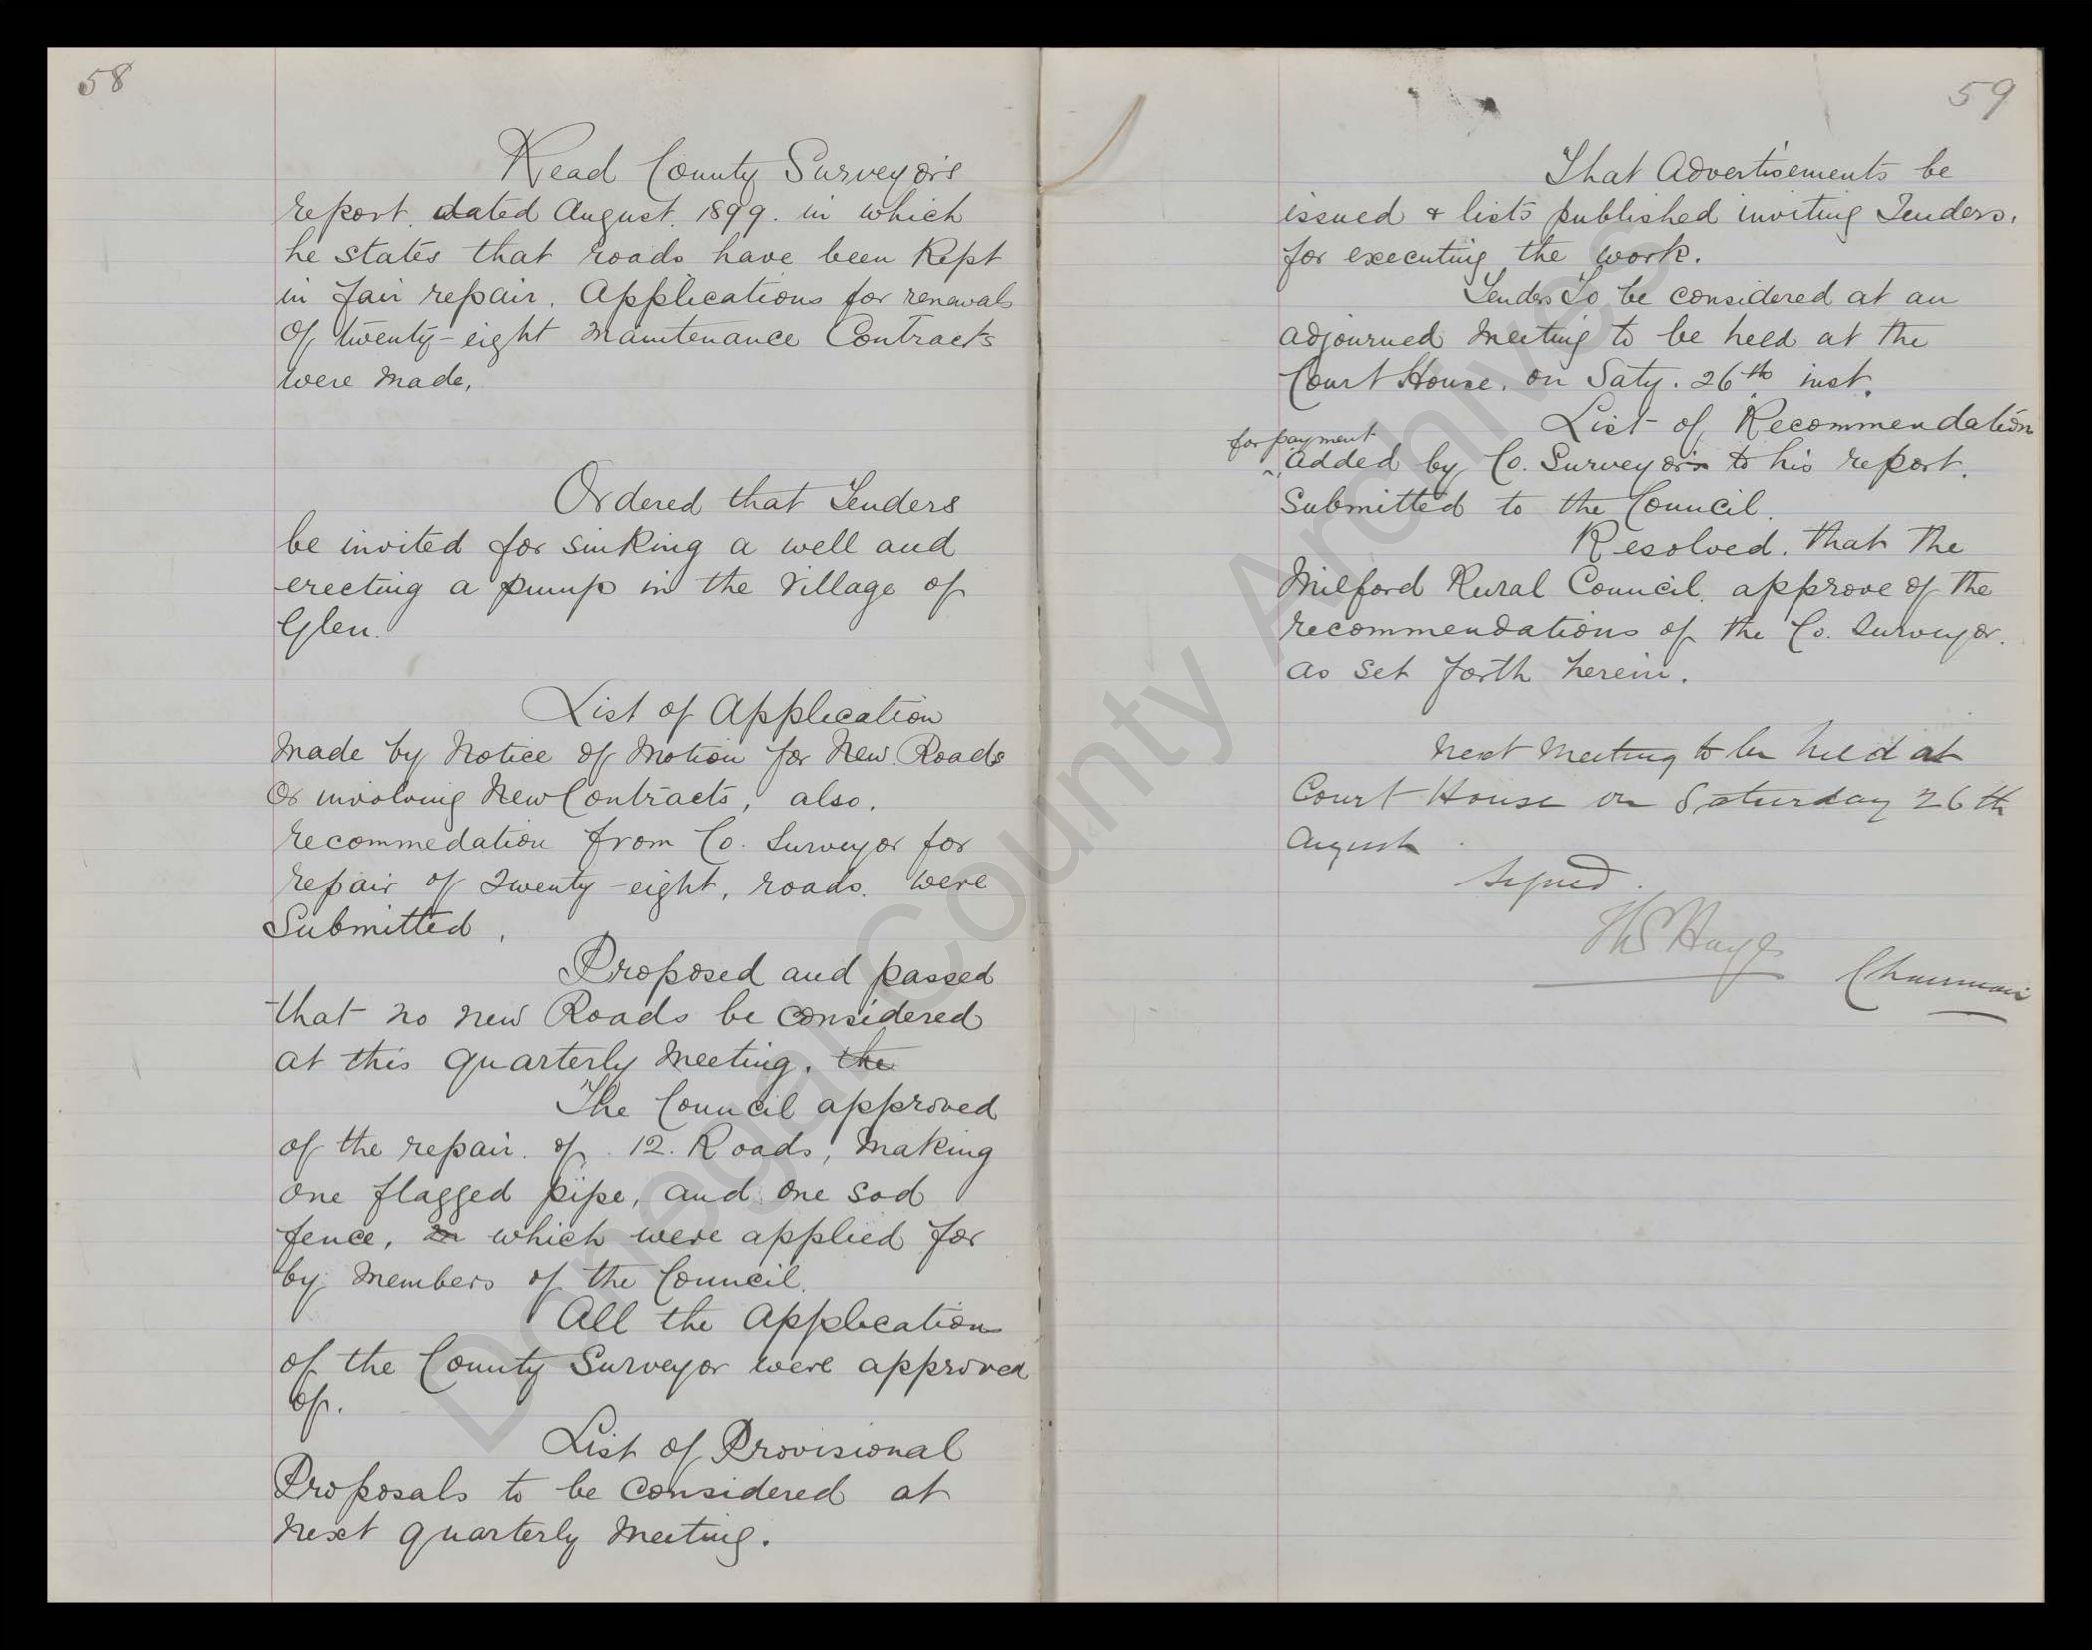 58
Read County Surveyor's
report dated August. 1899. in which
he states that roads have been kept
in fair repair. Applications for renewals
Of twenty-eight Maintenance Contracts
were made.
Ordered that Tenders
be invited for sinking a well and
erecting a pump in the Village of
Glen.
List of Application
made by Notice of Motion for New Roads
Or involving New Contracts, also.
recommedation from Co. Surveyor for
repair of Twenty-eight, roads. were
Submitted.
Proposed and passed
that no new Roads be considered
at this quarterly Meeting. the
The Council approved
of the repair. of. 12. Roads, Making
One flagged pipe, and One sod
fence, which were applied for
by Members of the Council.
All the Applications
of the County Surveyor were approved
of.
List of Provisional
Proposals to be considered at
Next quarterly Meeting.
59
That Advertisements be
issued & lists published inviting Tenders.
for executing the work.
Tenders To be considered at an
adjourned Meeting to be held at the
Court House. on Saty. 26th inst.
List of Recommendation
for payment
^ added by Co. Surveyor to his report.
Submitted to the Council.
Resolved. That The
Milford Rural Council. approve of the
recommendations of the Co. Surveyor.
as set forth herein.
Next Meeting to be held at
Court House on Saturday 26th
August.
Signed.
Ths Hay
Chairman
Donegal County Archives